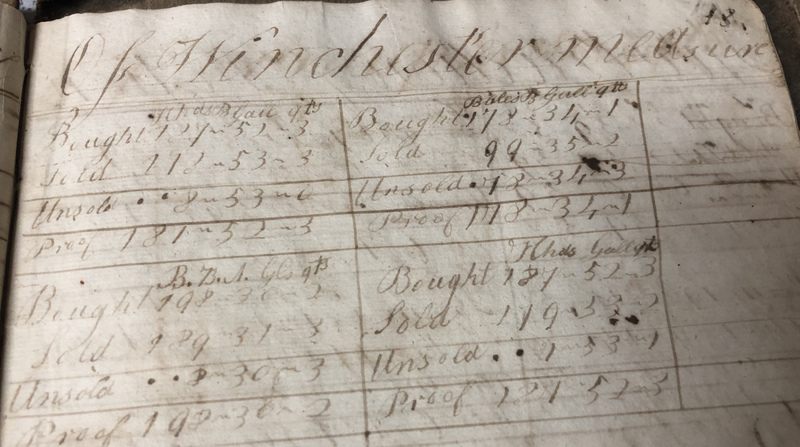 18.
Of Winchester measure
Hhds Gall qts
Bought 127 - 52 - 3
Sold 118 - 53 - 3
Unsold 8 - 53 -
Proof 52 - 3
Gall qts
Bought 34 - 1
Sold 99 - 35 - 2
Unsold 34 - 3
Proof 118 - 34 - 1
qts
Bought 198 - 30 - 2
Sold 189 - 31 - 3
Unsold 8 - 30 - 3
Proof 198 - 30 - 2
Hhds Gall qts
Bought 52 - 3
Sold 119 - 53 - 2
Unsold 53 - 1
Proof 52 - 3